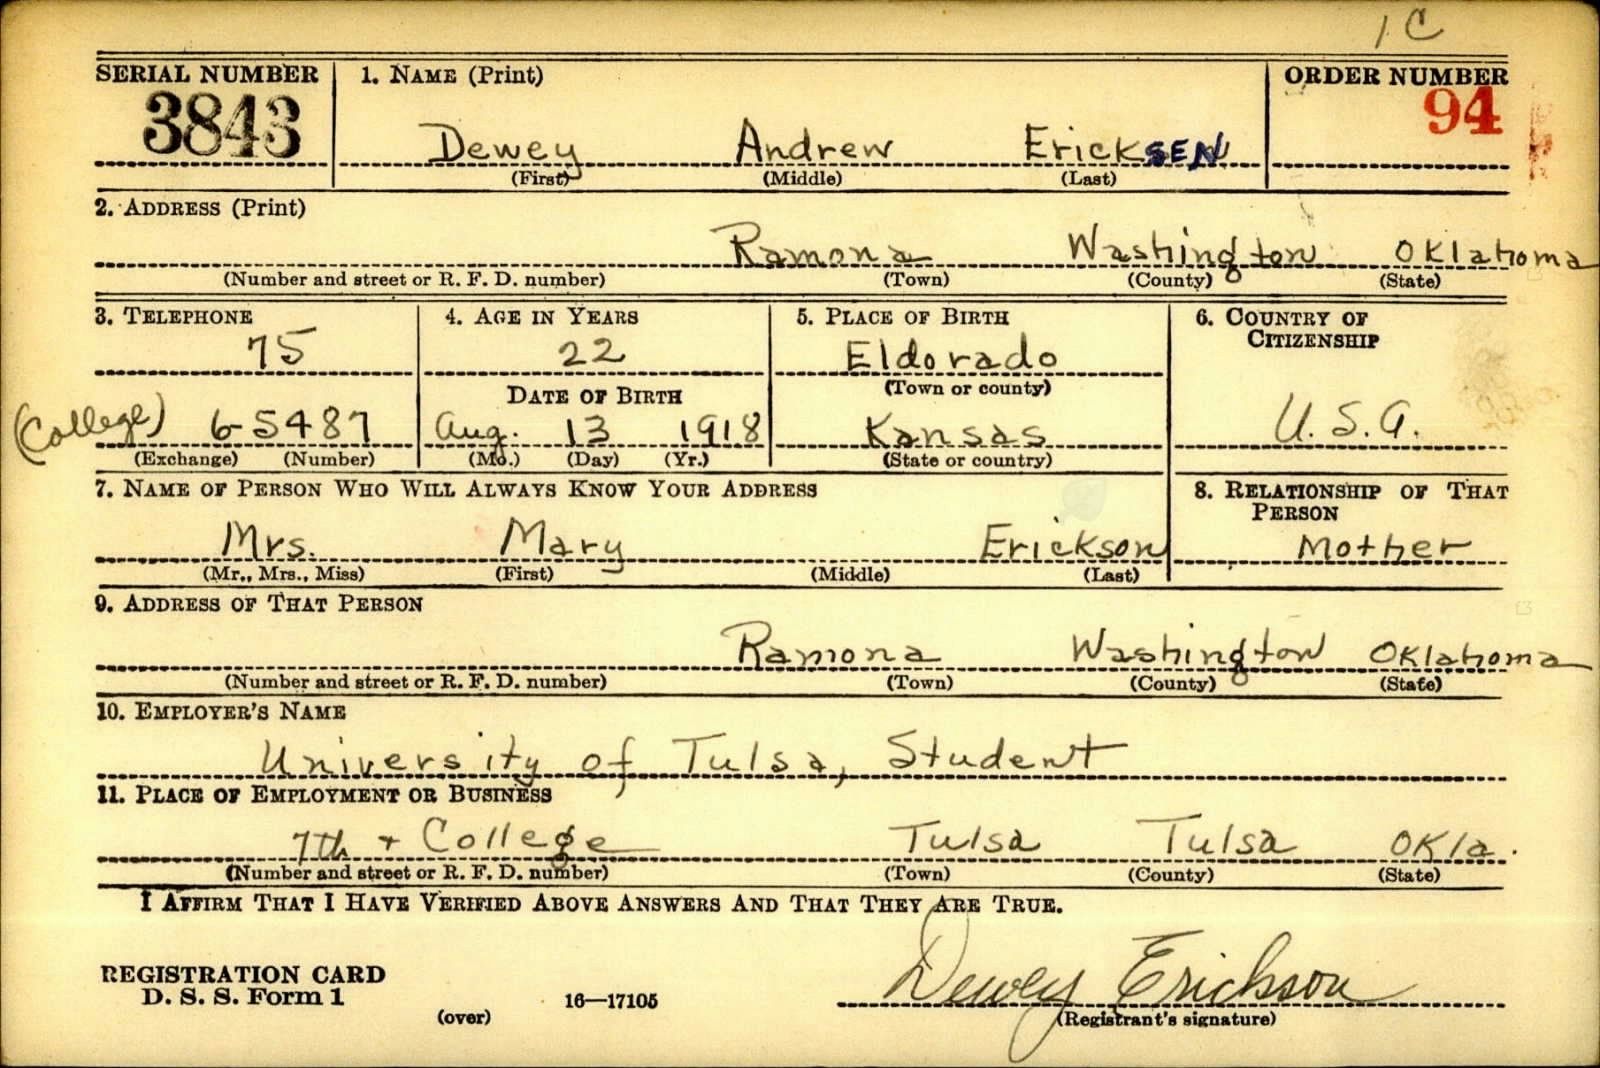 1C
SERIAL NUMBER 1. NAME (Print) ORDER NUMBER
3843 94
Dewey Andrew ErickSEN
(First) (Middle) (Last)
2. ADDRESS (Print)
Ramona Washington Oklahoma
(Number and street or R. F. D. number) (Town) (County) (State)
3. TELEPHONE 4. AGE IN YEARS 5. PLACE OF BIRTH 6. COUNTRY OF
CITIZENSHIP
75 22 Eldorado
DATE OF BIRTH (Town or county)
(College) 6-5487 Aug. 13 1918 Kansas U.S.A.
(Exchange) (Number) (Mo.) (Day) (Yr.) (State or country)
7. NAME OF PERSON WHO WILL ALWAYS KNOW YOUR ADDRESS 8. RELATIONSHIP OF THAT
PERSON
Mrs. Mary Erickson Mother
(Mr., Mrs., Miss) (First) (Middle) (Last)
9. ADDRESS OF THAT PERSON
Ramona Washington Oklahoma
(Number and street or R. F. D. number) (Town) (County) (State)
10. EMPLOYER'S NAME
University of Tulsa, Student
11. PLACE OF EMPLOYMENT OR BUSINESS
7th + College Tulsa Tulsa Okla.
(Number and street or R. F. D. number) (Town) (County) (State)
I AFFIRM THAT I HAVE VERIFIED ABOVE ANSWERS AND THAT THEY ARE TRUE.
REGISTRATION CARD
D. S. S. Form 1 16—17105 Dewey Erickson
(over) (Registrant's signature)